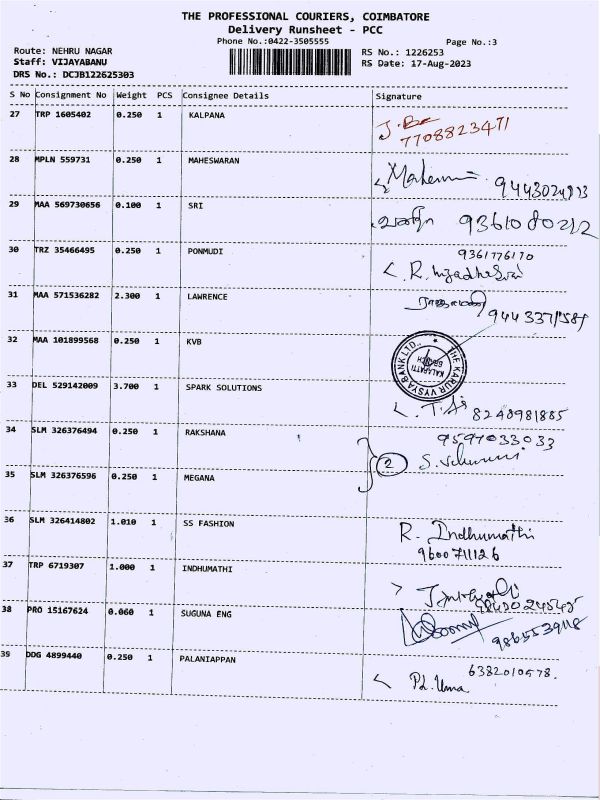 THE PROFESSIONAL COURIERS, COIMBATORE
Delivery Runsheet - PCC
Phone No.:0422-3505555
Page No.:3
Route: NEHRU NAGAR
RS No.: 1226253
Staff: VIJAYABANU
RS Date: 17-Aug-2023
DRS No.: DCJB122625303
S No Consignment No Weight PCS Consignee Details Signature
27 TRP 1605402 0.250 1 KALPANA
7708823471
28 MPLN 559731 0.250 1 MAHESWARAN
29 MAA 569730656 0.100 1 SRI
9361080212
30 TRZ 35466495 0.250 1 PONMUDI
9361776170
31 MAA 571536282 2.300 1 LAWRENCE
32 MAA 101899568 0.250 1 KVB
THE KARUR VYSYA BANK LTD.,
KALAPATTI
BRANCH
33 DEL 529142009 3.700 1 SPARK SOLUTIONS
8248981885
34 SLM 326376494 0.250 1 RAKSHANA
9597033033
2
35 SLM 326376596 0.250 1 MEGANA
36 SLM 326414802 1.010 1 SS FASHION
R. Indhumathi
9600711126
37 TRP 6719307 1.000 1 INDHUMATHI
38 PRO 15167624 0.060 1 SUGUNA ENG
9865539118
39 DDG 4899440 0.250 1 PALANIAPPAN
6382010578.
Pl. Uma